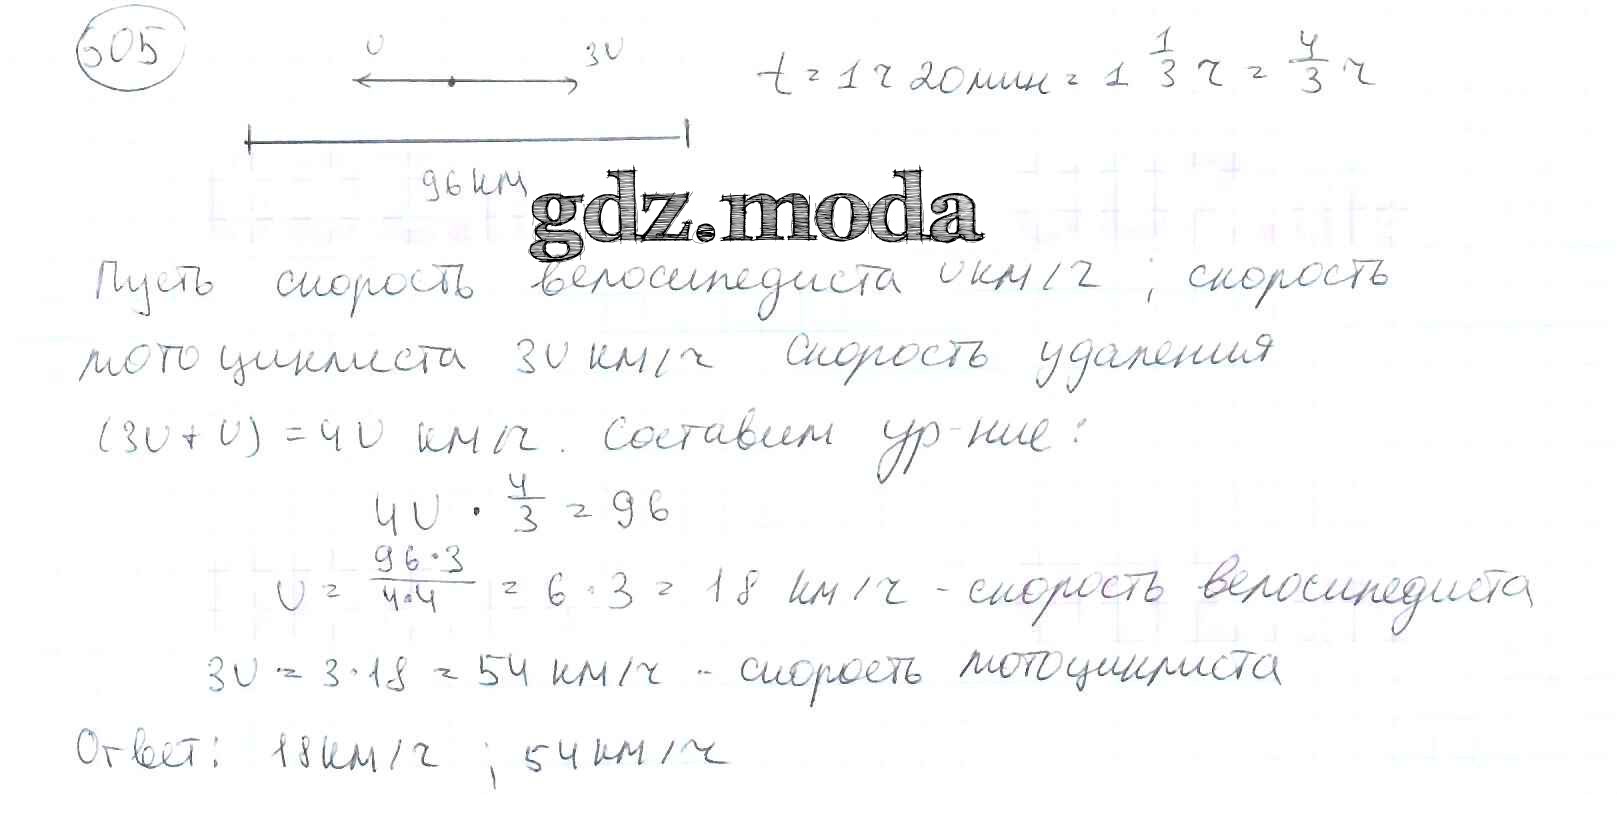 505
υ 3υ
t = 1 ч 20 мин = 1 1/3 ч = 4/3 ч
96 км
gdz.moda
Пусть скорость велосипедиста υ км/ч ; скорость
мотоциклиста 3υ км/ч скорость удаления
(3υ + υ) = 4υ км/ч. Составим ур-ние:
4υ · 4/3 = 96
υ = 96·3/4·4 = 6·3 = 18 км/ч - скорость велосипедиста
3υ = 3·18 = 54 км/ч - скорость мотоциклиста
Ответ: 18 км/ч ; 54 км/ч